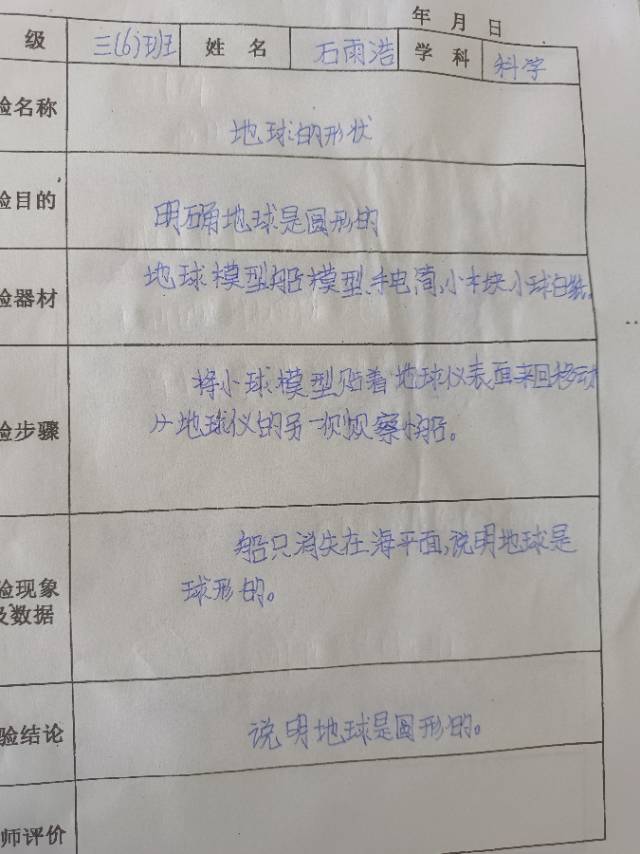 年 月 日
级 三(6)班 姓名 石雨浩 学科 科学
验名称 地球的形状
验目的 明确地球是圆形的
验器材 地球模型船模型、手电筒、小木块、小球白纸。
将小球模型贴着地球仪表面来回移动
验步骤 从地球仪的另一侧观察快船。
船只消失在海平面,说明地球是
验现象 球形的。
及数据
验结论 说明地球是圆形的。
师评价